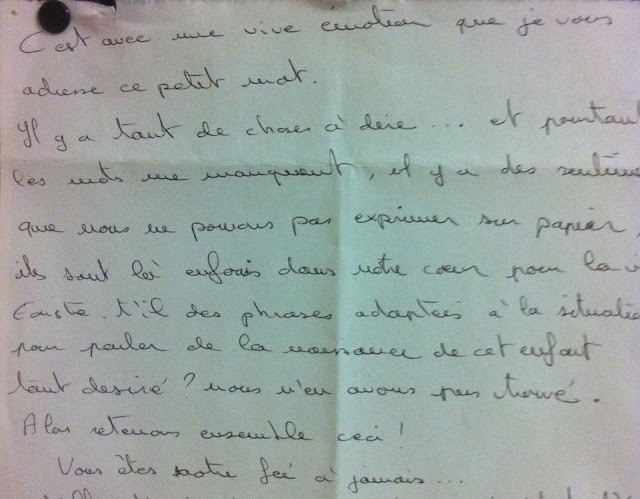 C'est avec une vive émotion que je vous
adresse ce petit mot.
Il y a tant de choses à dire ... et pourtant
les mots me manquent, il y a des sentime
que nous ne pouvons pas exprimer sur papier,
ils sont là enfouis dans notre cœur pour la vi
Existe-t'il des phrases adaptées à la situatio
pour parler de la naissance de cet enfant
tant desiré ? nous n'en avons pas trouvé.
Alors retenons ensemble ceci !
Vous êtes notre fée à jamais...